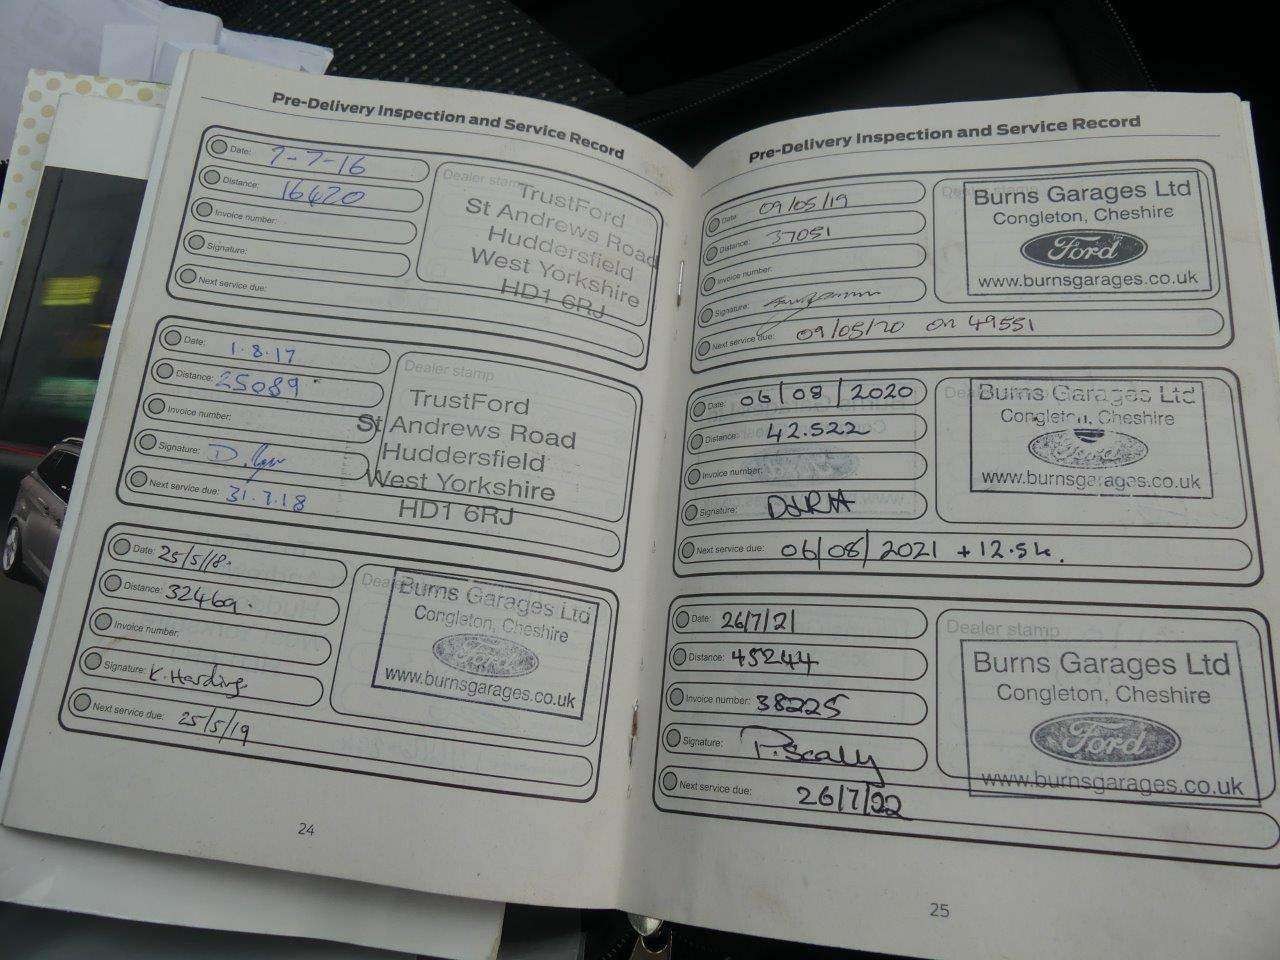 Pre-Delivery Inspection and Service Record
Date: 7-7-16
Distance: 16420
Invoice number:
Signature:
Next service due:
Dealer stamp
TrustFord
St Andrews Road
Huddersfield
West Yorkshire
HD1 6RJ
Date: 1.8.17
Distance: 25089
Invoice number:
Signature:
Next service due: 31.7.18
Dealer stamp
TrustFord
St Andrews Road
Huddersfield
West Yorkshire
HD1 6RJ
Date: 25/5/18.
Distance: 32469.
Invoice number:
Signature: K. Harding
Next service due: 25/5/19
Burns Garages Ltd
Congleton, Cheshire
www.burnsgarages.co.uk
24
Pre-Delivery Inspection and Service Record
Date: 09/05/19
Distance: 37051
Invoice number:
Signature:
Next service due: 09/05/20 on 49551
Burns Garages Ltd
Congleton, Cheshire
Ford
www.burnsgarages.co.uk
Date: 06/08/2020
Distance: 42.522
Invoice number:
Signature:
Next service due: 06/08/2021 + 12.5k.
Burns Garages Ltd
Congleton, Cheshire
www.burnsgarages.co.uk
Date: 26/7/21
Distance: 45244
Invoice number: 38225
Signature: P. Scally
Next service due: 26/7/22
Dealer stamp
Burns Garages Ltd
Congleton, Cheshire
Ford
www.burnsgarages.co.uk
25